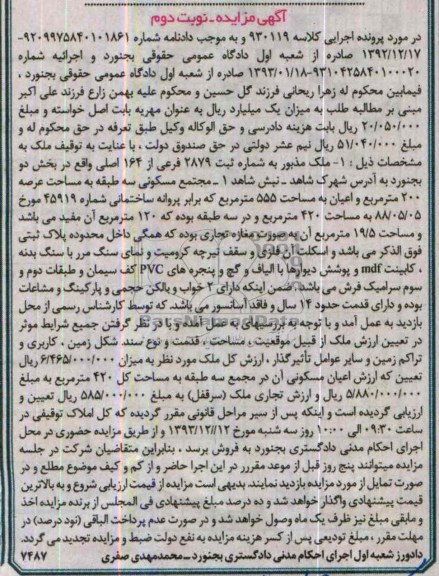 آگهی مزایده ـ نوبت دوم
در مورد پرونده اجرایی کلاسه ۹۳۰۱۱۹ و به موجب دادنامه شماره ۹۲۰۹۹۷۵۸۴۰۱۰۱۸۶۱-
۱۳۹۲/۱۲/۱۷ صادره از شعبه اول دادگاه عمومی حقوقی بجنورد و اجرائیه شماره
۹۳۱۰۴۲۵۸۴۰۱۰۰۰۲۰-۱۳۹۳/۰۱/۱۸ صادره از شعبه اول دادگاه عمومی حقوقی بجنورد ،
فیمابین محکوم له زهرا ریحانی فرزند گل حسین و محکوم علیه بهمن زارع فرزند علی اکبر
مبنی بر مطالبه طلب به میزان یک میلیارد ریال به عنوان مهریه بابت اصل خواسته و مبلغ
۲۰/۰۵۰/۰۰۰ ریال بابت هزینه دادرسی و حق الوکاله وکیل طبق تعرفه در حق محکوم له و
مبلغ ۵۱/۰۴۰/۰۰۰ ریال نیم عشر دولتی در حق صندوق دولت ، با عنایت به توقیف ملک به
مشخصات ذیل : ۱- ملک مذبور به شماره ثبت ۲۸۷۹ فرعی از ۱۶۴ اصلی واقع در بخش دو
بجنورد به آدرس شهرک شاهد ـ نبش شاهد ۱ ـ مجتمع مسکونی سه طبقه به مساحت عرصه
۲۰۰ مترمربع و اعیان به مساحت ۵۵۵ مترمربع که برابر پروانه ساختمانی شماره ۴۵۹۱۹ مورخ
۸۸/۰۵/۰۵ به مساحت ۴۲۰ مترمربع و در سه طبقه بوده که ۱۲۰ مترمربع آن مفید می باشد
و مساحت ۱۹/۵ مترمربع آن به صورت مغازه تجاری بوده که همگی داخل محدوده پلاک ثبتی
فوق الذکر می باشد و اسکلت آن فلزی و سقف تیرچه کرومیت و نمای سنگ مرر با سنگ بدنه
، کابینت mdf و پوشش دیوارها با الیاف و گچ و پنجره های PVC کف سیمان و طبقات دوم و
سوم سرامیک فرش می باشد، ضمن اینکه دارای ۲ خواب و بالکن حجمی و پارکینگ و مشاعات
بوده و دارای قدمت حدود ۱۴ سال و فاقد آسانسور می باشد. که توسط کارشناس رسمی از محل
بازدید به عمل آمد و با توجه به بررسیهای به عمل آمده و با در نظر گرفتن جمیع شرایط موثر
در تعیین ارزش ملک از قبیل موقعیت ، مساحت ، قدمت و نوع سند شکل زمین ، کاربری و
تراکم زمین و سایر عوامل تأثیرگذار ، ارزش کل ملک مورد نظر به میزان ۶/۴۶۵/۰۰۰/۰۰۰ ریال
تعیین که ارزش اعیان مسکونی آن در مجمع سه طبقه به مساحت کل ۴۲۰ مترمربع به مبلغ
۵/۸۸۰/۰۰۰/۰۰۰ ریال و ارزش تجاری ملک (سرقفل) به مبلغ ۵۸۵/۰۰۰/۰۰۰ ریال تعیین و
ارزیابی گردیده است و اینکه پس از سیر مراحل قانونی مقرر گردیده که کل املاک توقیفی در
ساعت ۰۹:۳۰ الی ۱۰:۰۰ روز سه شنبه مورخ ۱۳۹۳/۱۲/۱۲ و از طریق مزایده حضوری در محل
اجرای احکام مدنی دادگستری بجنورد به فروش برسد ، بنابراین متقاضیان شرکت در جلسه
مزایده میتوانند پنج روز قبل از موعد مقررر در این اجرا حاضر و از کم و کیف موضوع مطلع و در
صورت تمایل از مورد مزایده بازدید نمایند. بدیهی است مزایده از قیمت ارزیابی شروع و به بالاترین
قیمت پیشنهادی واگذار خواهد شد و ده درصد مبلغ پیشنهادی فی المجلس از برنده مزایده اخذ
و مابقی مبلغ نیز ظرف یک ماه وصول خواهد شد و در صورت عدم پرداخت الباقی (نود درصد) در
مهلت مقرر ، مبلغ تودیعی پس از کسر هزینه مزایده به نفع دولت ضبط و مزایده تجدید می گردد.
دادورز شعبه اول اجرای احکام مدنی دادگستری بجنورد ــ محمدمهدی صفری ۷۴۸۷